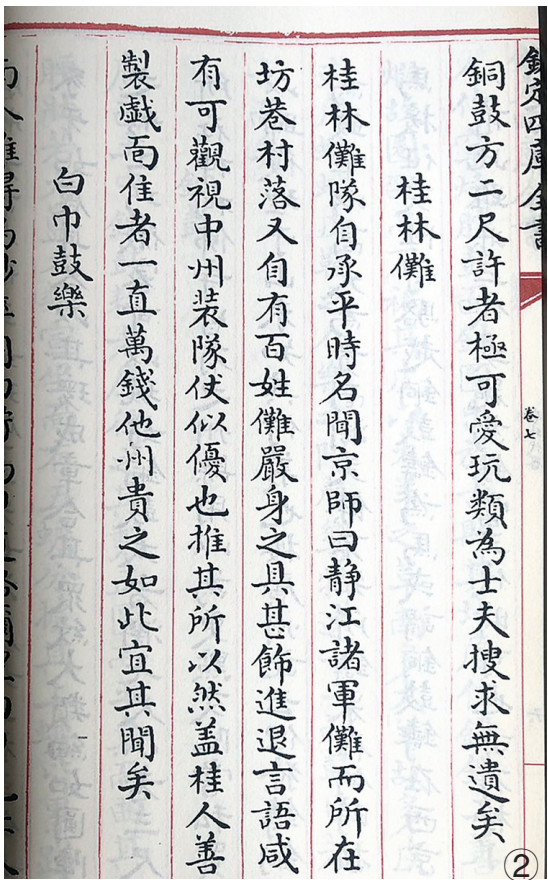 欽定四庫全書
卷七
銅鼓方二尺許者極可愛玩類為士夫搜求無遺矣
桂林儺
桂林儺隊自承平時名聞京師曰靜江諸軍儺而所在
坊巷村落又自有百姓儺嚴身之具甚飾進退言語咸
有可觀視中州装隊仗似優也推其所以然盖桂人善
製戯面佳者一直萬錢他州貴之如此宜其聞矣
白巾鼓樂
②